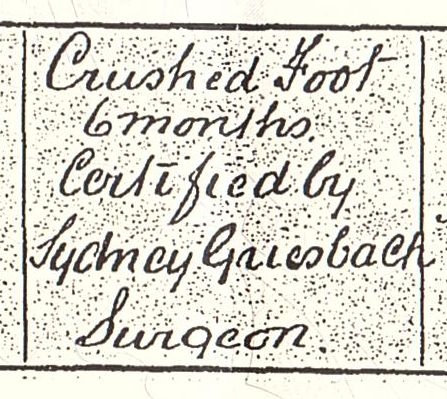 Crushed Foot
6 months.
Certified by
Sydney Griesbach
Surgeon.